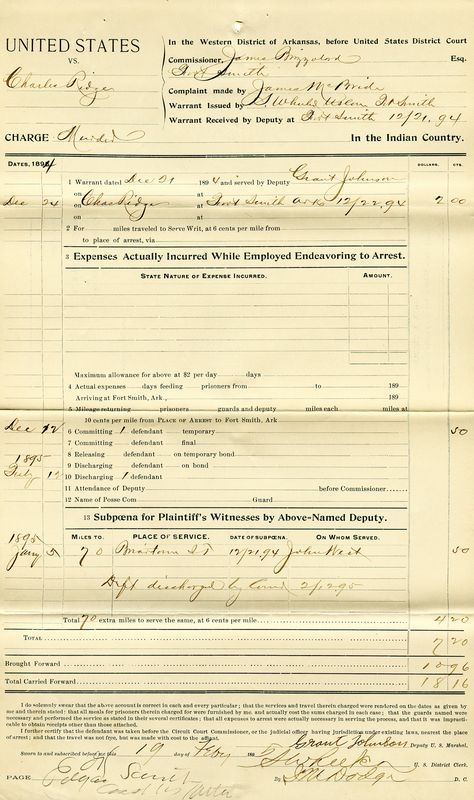 UNITED STATES
VS.
Charles Ridge
CHARGE Murder
In the Western District of Arkansas, before United States District Court
Commissioner, James Brizzolara Esq.
Fort Smith
Complaint made by James McBride
Warrant Issued by Ft Smith
Warrant Received by Deputy at Fort Smith 12/21, 94
In the Indian Country.
DATES, 1894 DOLLARS. CTS.
1 Warrant dated Dec 21 1894 and served by Deputy Grant Johnson
on at
Dec 24 on Chas Ridge at Fort Smith Ark 12/22, 94 2 00
on at
2 For miles traveled to Serve Writ, at 6 cents per mile from
to place of arrest, via
3 Expenses Actually Incurred While Employed Endeavoring to Arrest.
STATE NATURE OF EXPENSE INCURRED. AMOUNT.
Maximum allowance for above at $2 per day days
4 Actual expenses days feeding prisoners from to 189
Arriving at Fort Smith, Ark., 189
5 Mileage returning prisoners guards and deputy miles each miles at
10 cents per mile from PLACE OF ARREST to Fort Smith, Ark
Dec 6 Committing 1 defendant temporary 50
7 Committing defendant final
8 Releasing defendant on temporary bond
1895 9 Discharging defendant on bond
12 10 Discharging 1 defendant
11 Attendance of Deputy before Commissioner
12 Name of Posse Com Guard
13 Subpœna for Plaintiff's Witnesses by Above-Named Deputy.
MILES TO. PLACE OF SERVICE. DATE OF SUBPŒNA. ON WHOM SERVED.
1895
Jany 5 70 I T 12/21 94 John West 50
Deft discharged by Comr 2/12 95
Total 70 extra miles to serve the same, at 6 cents per mile 4 20
TOTAL 7 20
Brought Forward 10 96
Total Carried Forward 18 16
I do solemnly swear that the above account is correct in each and every particular; that the services and travel therein charged were rendered on the dates as given by
me and therein stated; that all meals for prisoners therein charged for were furnished by me, and actually cost the sums charged in each case; that the guards named were
necessary and performed the service as stated in their several certificates; that all expenses to arrest were actually necessary in serving the process, and that it was impracticable
to obtain receipts other than those attached.
I further certify that the defendant was taken before the Circuit Court Commissioner, or the judicial officer having jurisdiction under existing laws, nearest the place
of arrest; and that the travel was not frye, but was made with cost to the affiant.
Grant Johnson Deputy U. S. Marshal.
Sworn to and subscribed before me this 19 day of Feby 189
U. S. District Clerk.
PAGE By D. C.